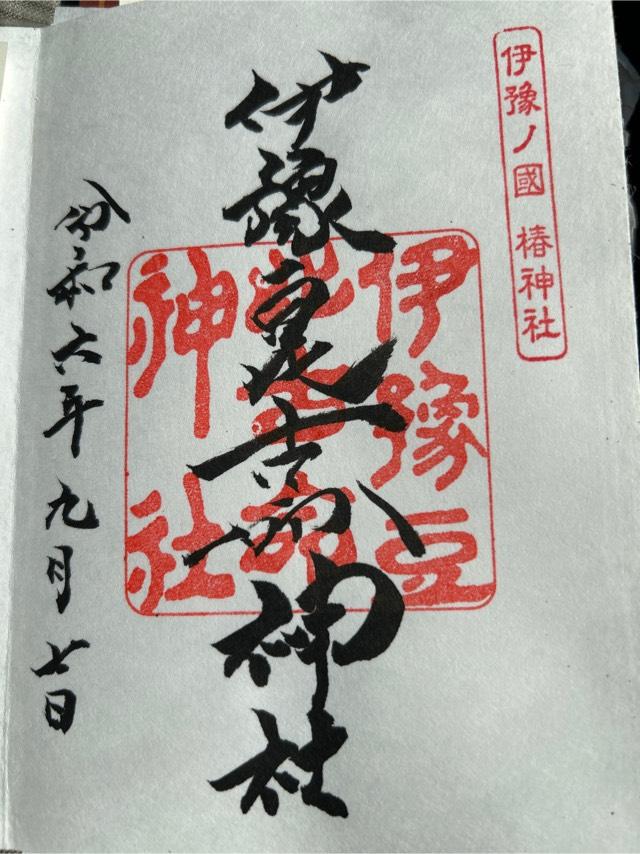 伊豫ノ國 椿神社
伊豫豆比古命神社
伊豫豆
比古命
神社
令和六年九月七日